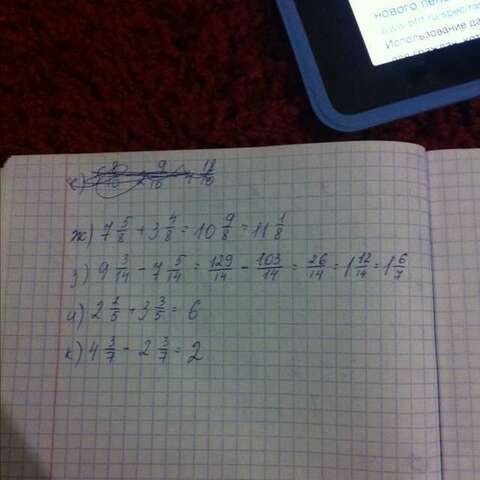 нового пенс
www.pfrf.ru/specta
Использование да
ж) 7 5/8 + 3 4/8 = 10 9/8 = 11 1/8
з) 9 3/14 - 7 5/14 = 129/14 - 103/14 = 26/14 = 1 12/14 = 1 6/7
и) 2 2/5 + 3 3/5 = 6
к) 4 3/7 - 2 3/7 = 2